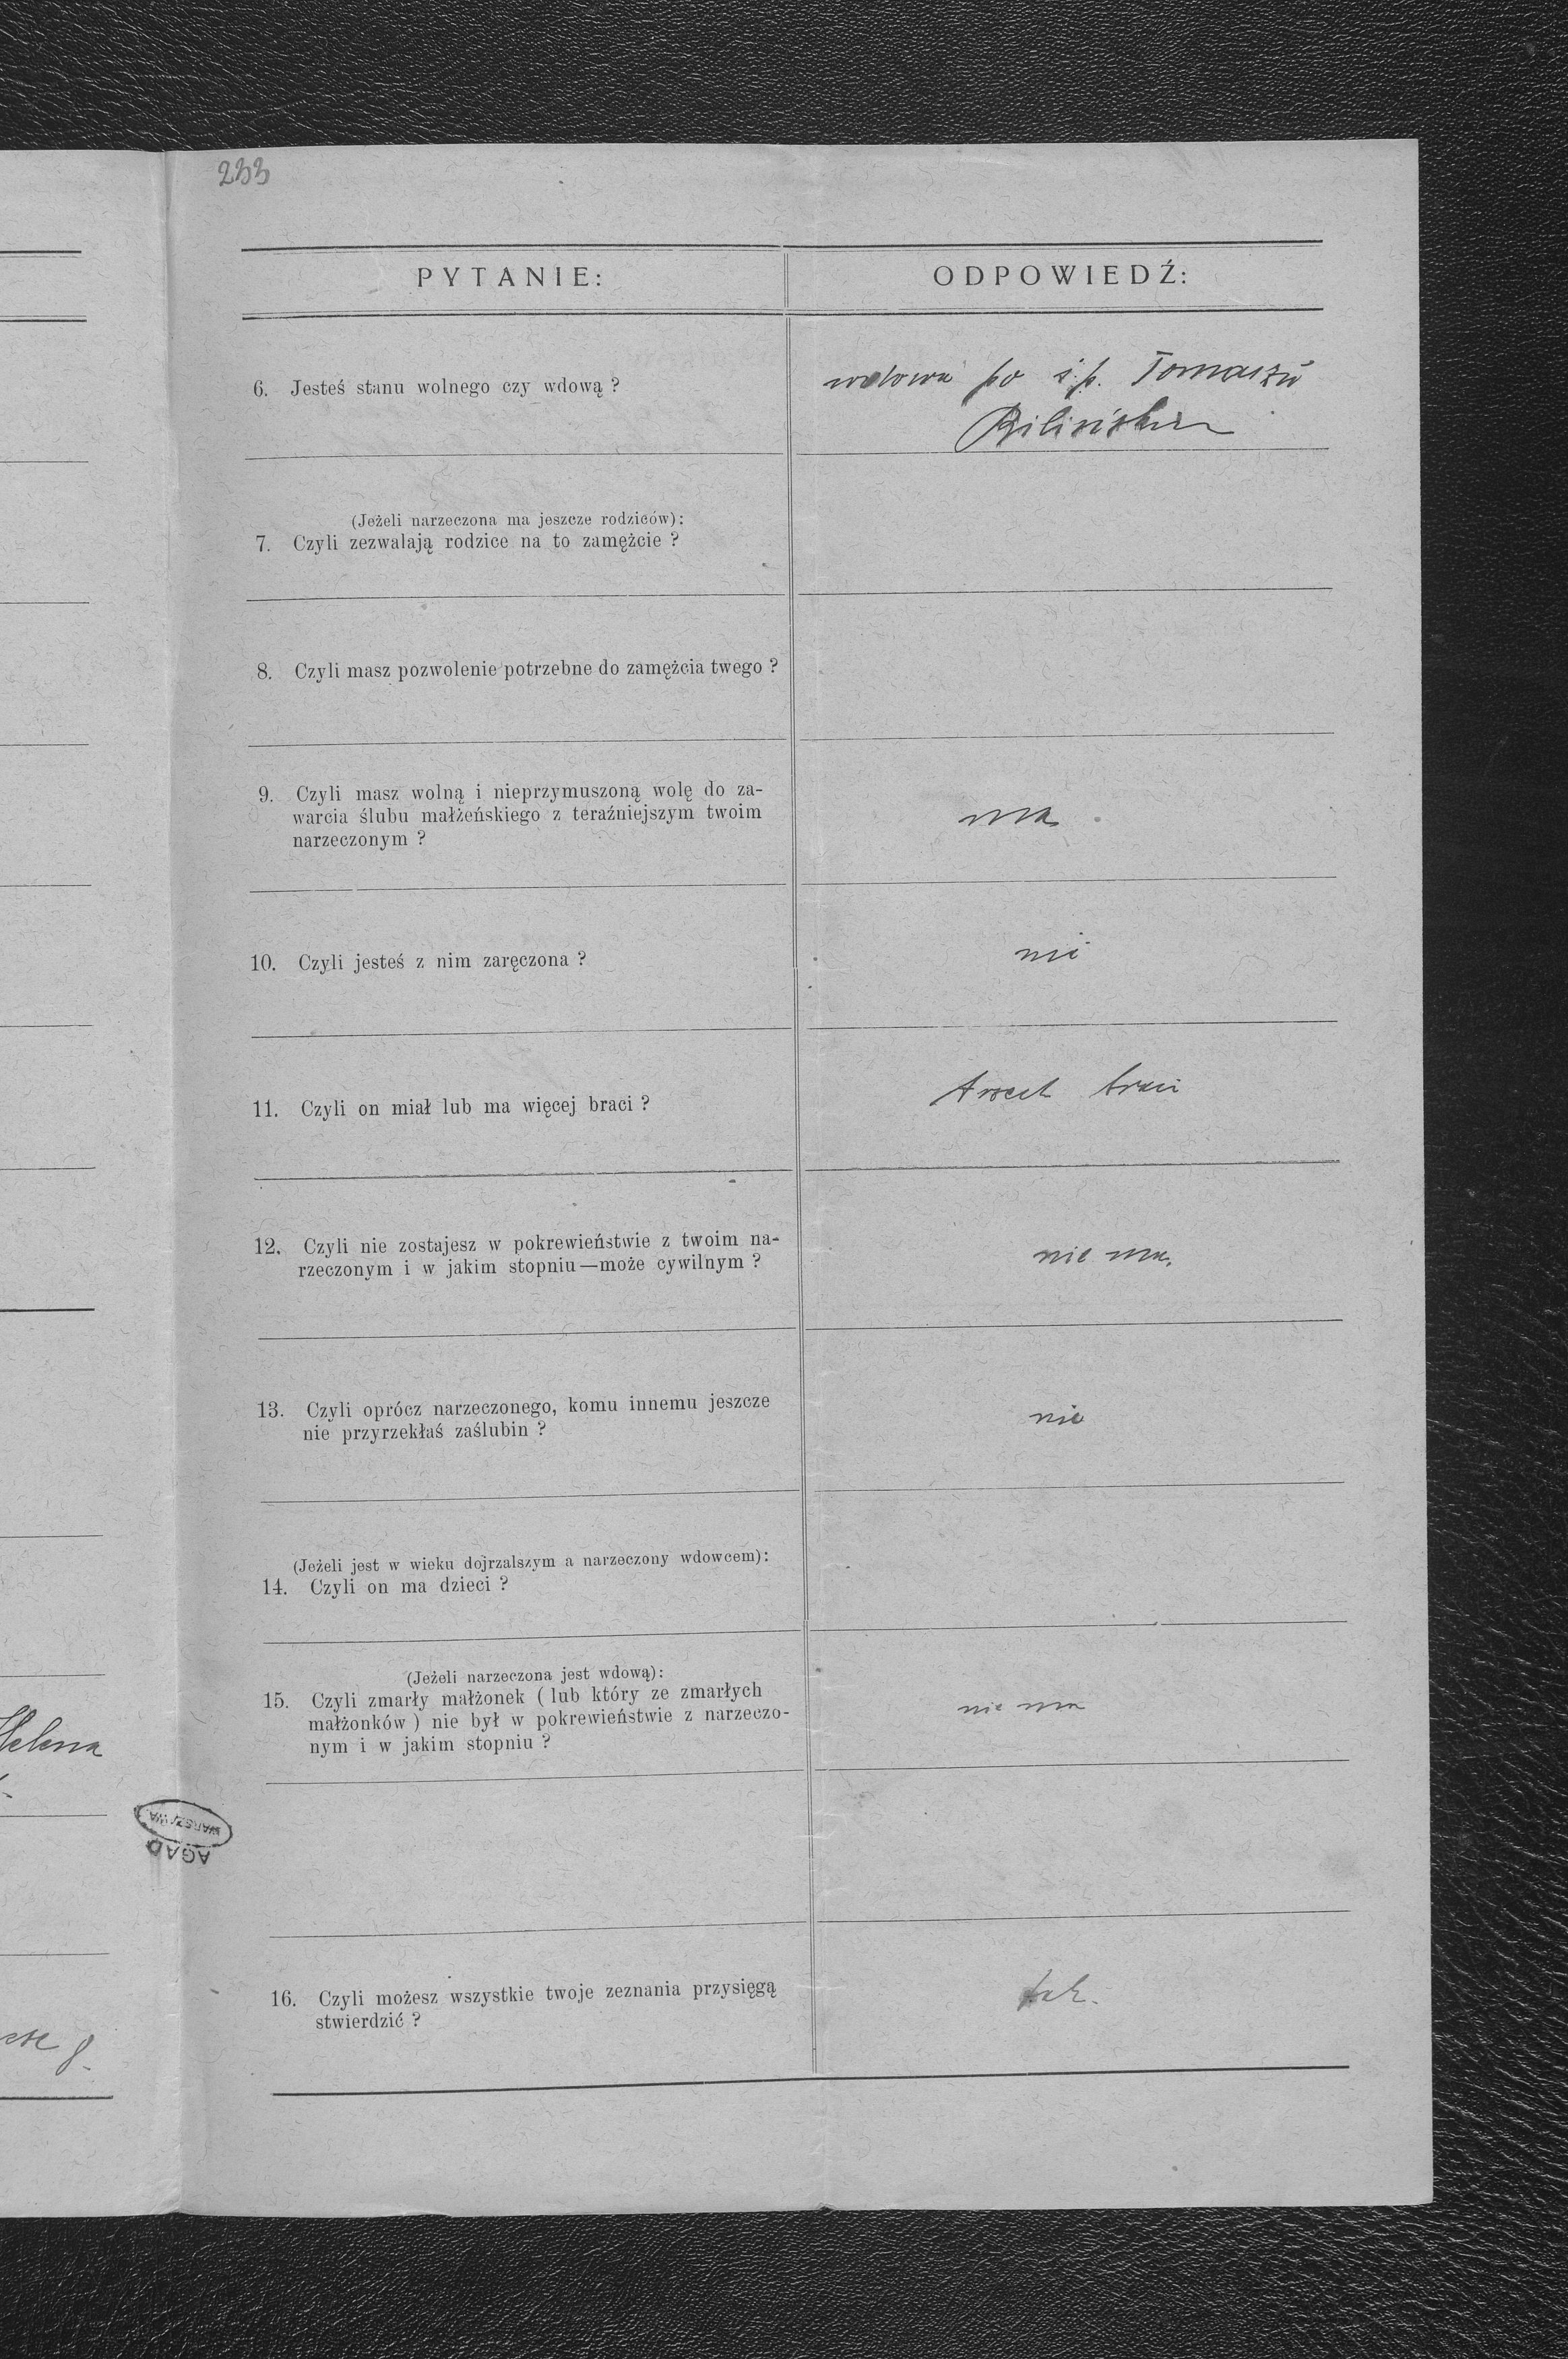 233
PYTANIE:
ODPOWIEDŹ:
6. Jesteś stanu wolnego czy wdową ?
wdowa po ś.p. Tomaszu
Bilińskim
(Jeżeli narzeczona ma jeszcze rodziców):
7. Czyli zezwalają rodzice na to zamężcie ?
8. Czyli masz pozwolenie potrzebne do zamężcia twego ?
9. Czyli masz wolną i nieprzymuszoną wolę do za-
warcia ślubu małżeńskiego z teraźniejszym twoim
narzeczonym ?
ma
10. Czyli jesteś z nim zaręczona ?
nie
11. Czyli on miał lub ma więcej braci ?
trzech braci
12. Czyli nie zostajesz w pokrewieństwie z twoim na-
rzeczonym i w jakim stopniu—może cywilnym ?
nie ma.
13. Czyli oprócz narzeczonego, komu innemu jeszcze
nie przyrzekłaś zaślubin ?
nie
(Jeżeli jest w wieku dojrzalszym a narzeczony wdowcem):
14. Czyli on ma dzieci ?
(Jeżeli narzeczona jest wdową):
15. Czyli zmarły małżonek ( lub który ze zmarłych
małżonków ) nie był w pokrewieństwie z narzeczo-
nym i w jakim stopniu ?
nie ma
Helena
WARSZAWA
AGAD
16. Czyli możesz wszystkie twoje zeznania przysięgą
stwierdzić ?
tak.